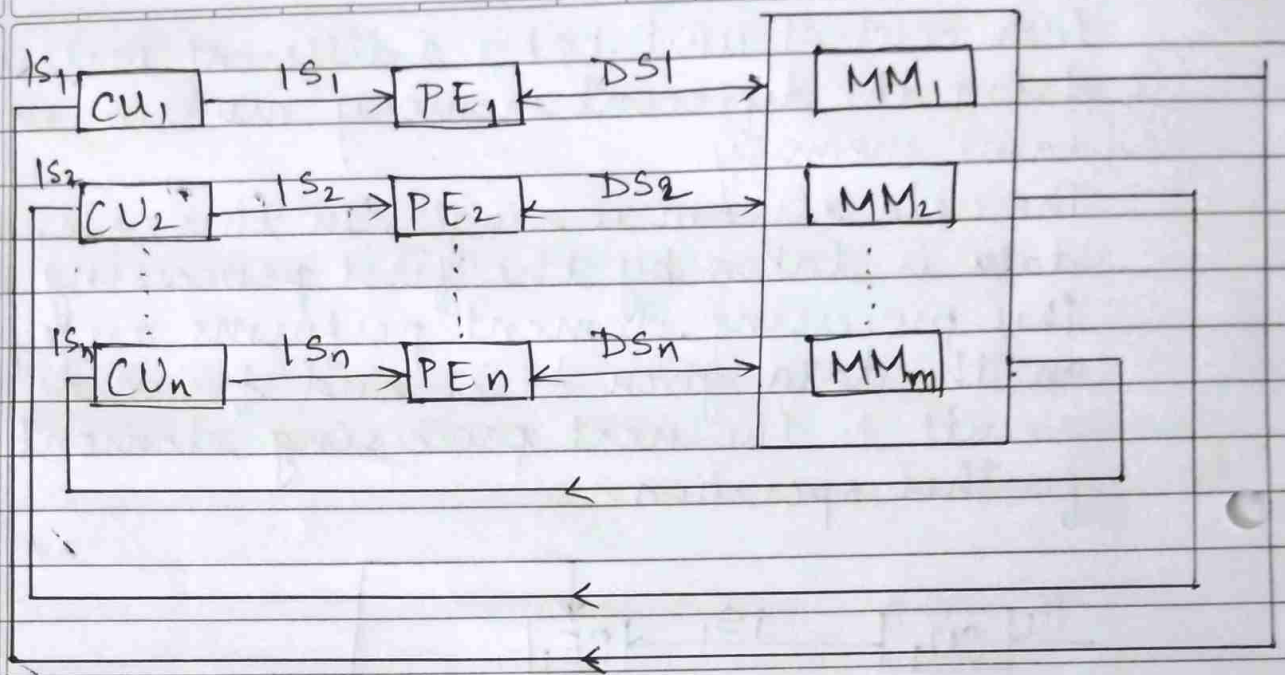 IS₁ CU₁ IS₁ PE₁ DS1 MM₁
IS₂ CU₂ IS₂ PE₂ DS2 MM₂
ISₙ CUₙ ISₙ PEₙ DSₙ MMₘ